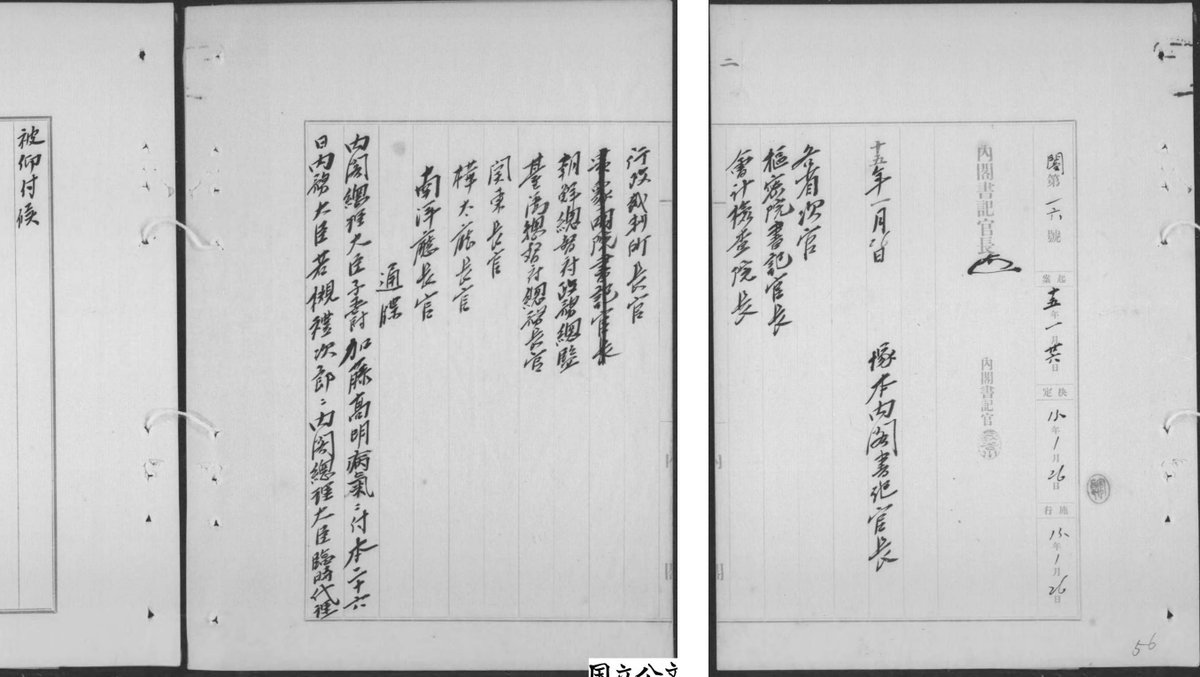 二
閣第一六號
起案 十五年一月廿六日
決定 15年1月26日
施行 15年1月26日
內閣書記官長
內閣書記官
十五年一月 日
塚本内閣書記官長
各省次官
樞密院書記官長
會計檢查院長
行政裁判所長官
朝鮮總督府政務總監
臺湾總督府總務長官
関東長官
樺太廳長官
南洋廳長官
通牒
内閣總理大臣子爵加藤高明病氣ニ付本二十六
日内務大臣若槻禮次郎ニ内閣總理大臣臨時代理
被仰付候
56
国立公文